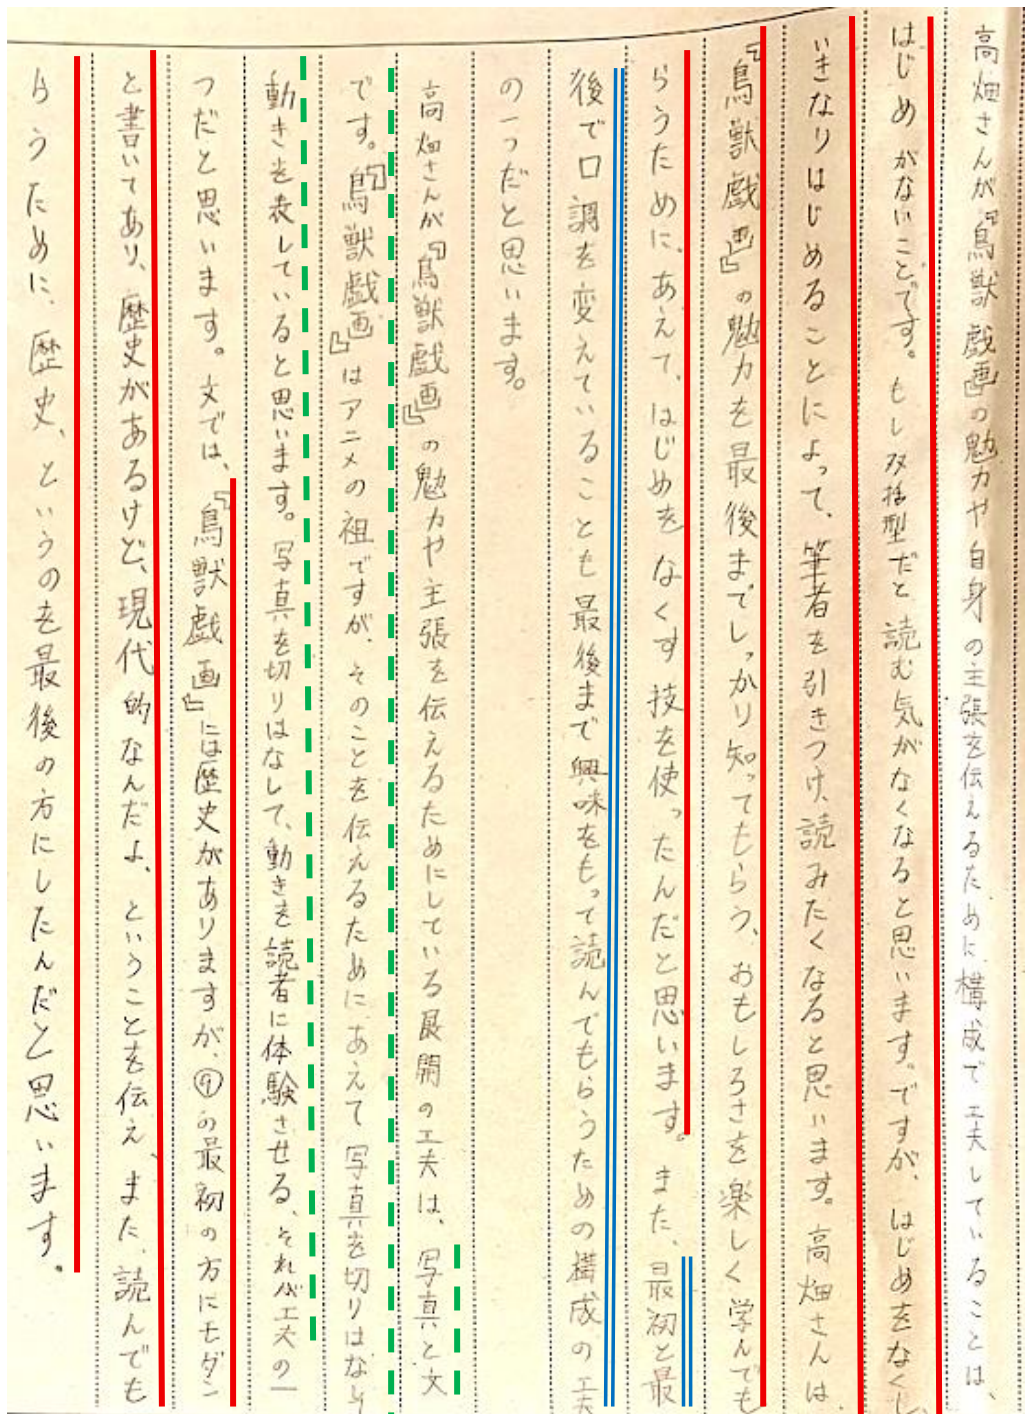 高畑さんが『鳥獣戯画』の魅力や自身の主張を伝えるために構成で工夫していることは、
はじめがないことです。もし双括型だと読む気がなくなると思います。ですが、はじめをなくし、
いきなりはじめることによって、筆者を引きつけ、読みたくなると思います。高畑さんは
『鳥獣戯画』の魅力を最後までしっかり知ってもらう、おもしろさを楽しく学んでも
らうために、あえて、はじめをなくす技を使ったんだと思います。また、最初と最
後で口調を変えていることも最後まで興味をもって読んでもらうための構成の工夫
の一つだと思います。
高畑さんが『鳥獣戯画』の魅力や主張を伝えるためにしている展開の工夫は、写真と文
です。『鳥獣戯画』はアニメの祖ですが、そのことを伝えるために、あえて写真を切りはなし
動きを表していると思います。写真を切りはなして、動きを読者に体験させる、それが工夫の一
つだと思います。文では、『鳥獣戯画』には歴史がありますが、⑨の最初の方にモダン
と書いてあり、歴史があるけど、現代的なんだよ、ということを伝え、また、読んでも
らうために、歴史、というのを最後の方にしたんだと思います。